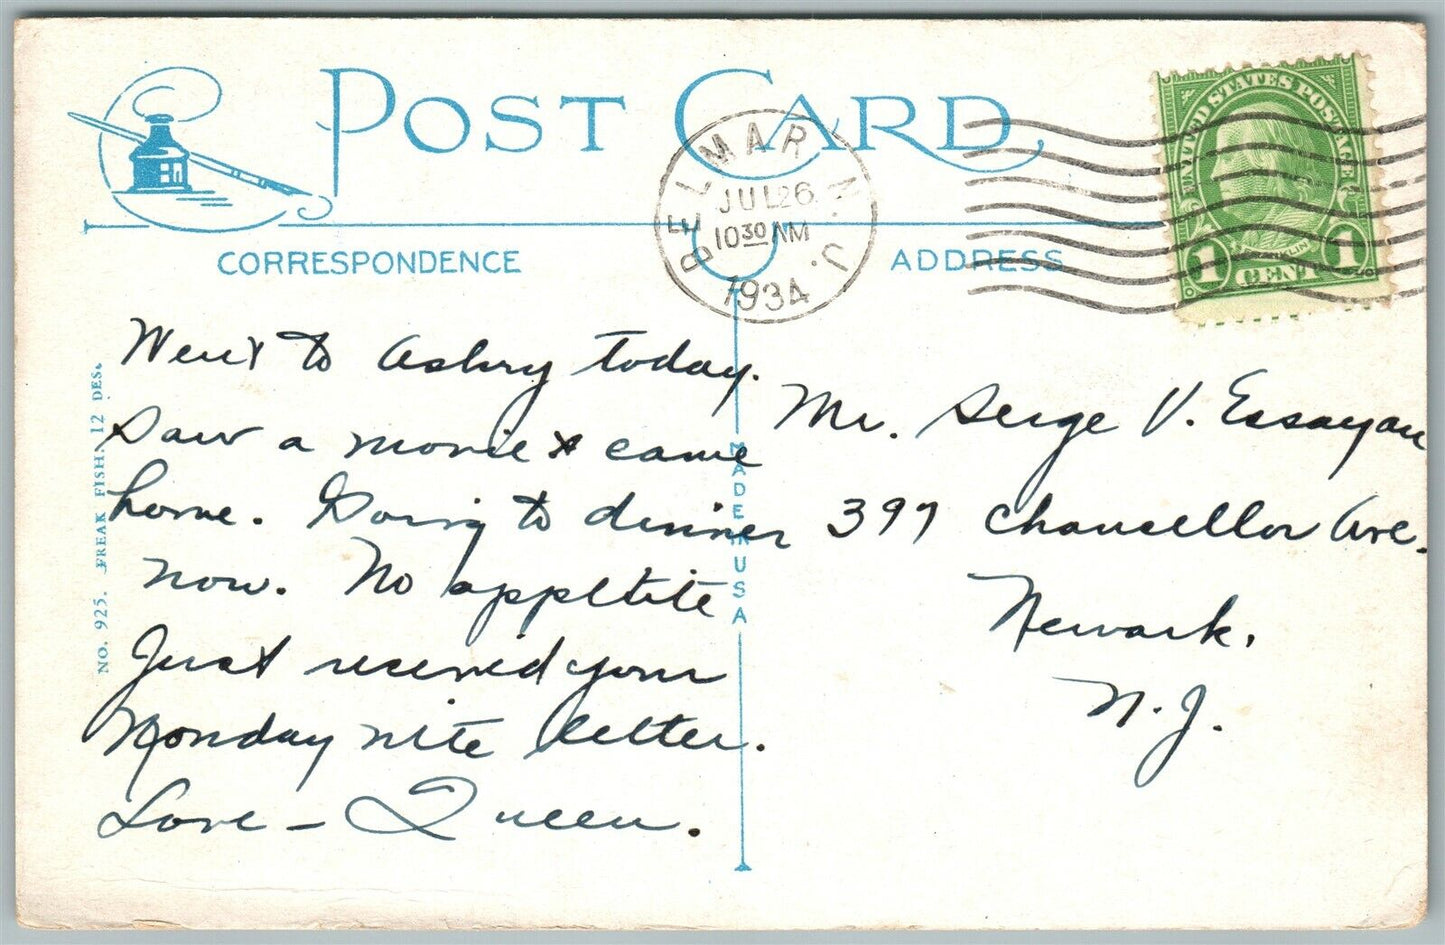 POST CARD
CORRESPONDENCE
ADDRESS
BELMAR N. J.
JUL 26
10 30 AM
1934
UNITED STATES POSTAGE
FRANKLIN
1 CENT 1
Went to Asbury today.
Saw a movie & came
home. Going to dinner
now. No appetite
Just received your
Monday nite letter.
Love - Queen.
Mr. Serge V. Essayan
397 Chancellor Ave.
Newark.
N. J.
NO. 925. FREAK FISH. 12 DES.
MADE IN USA